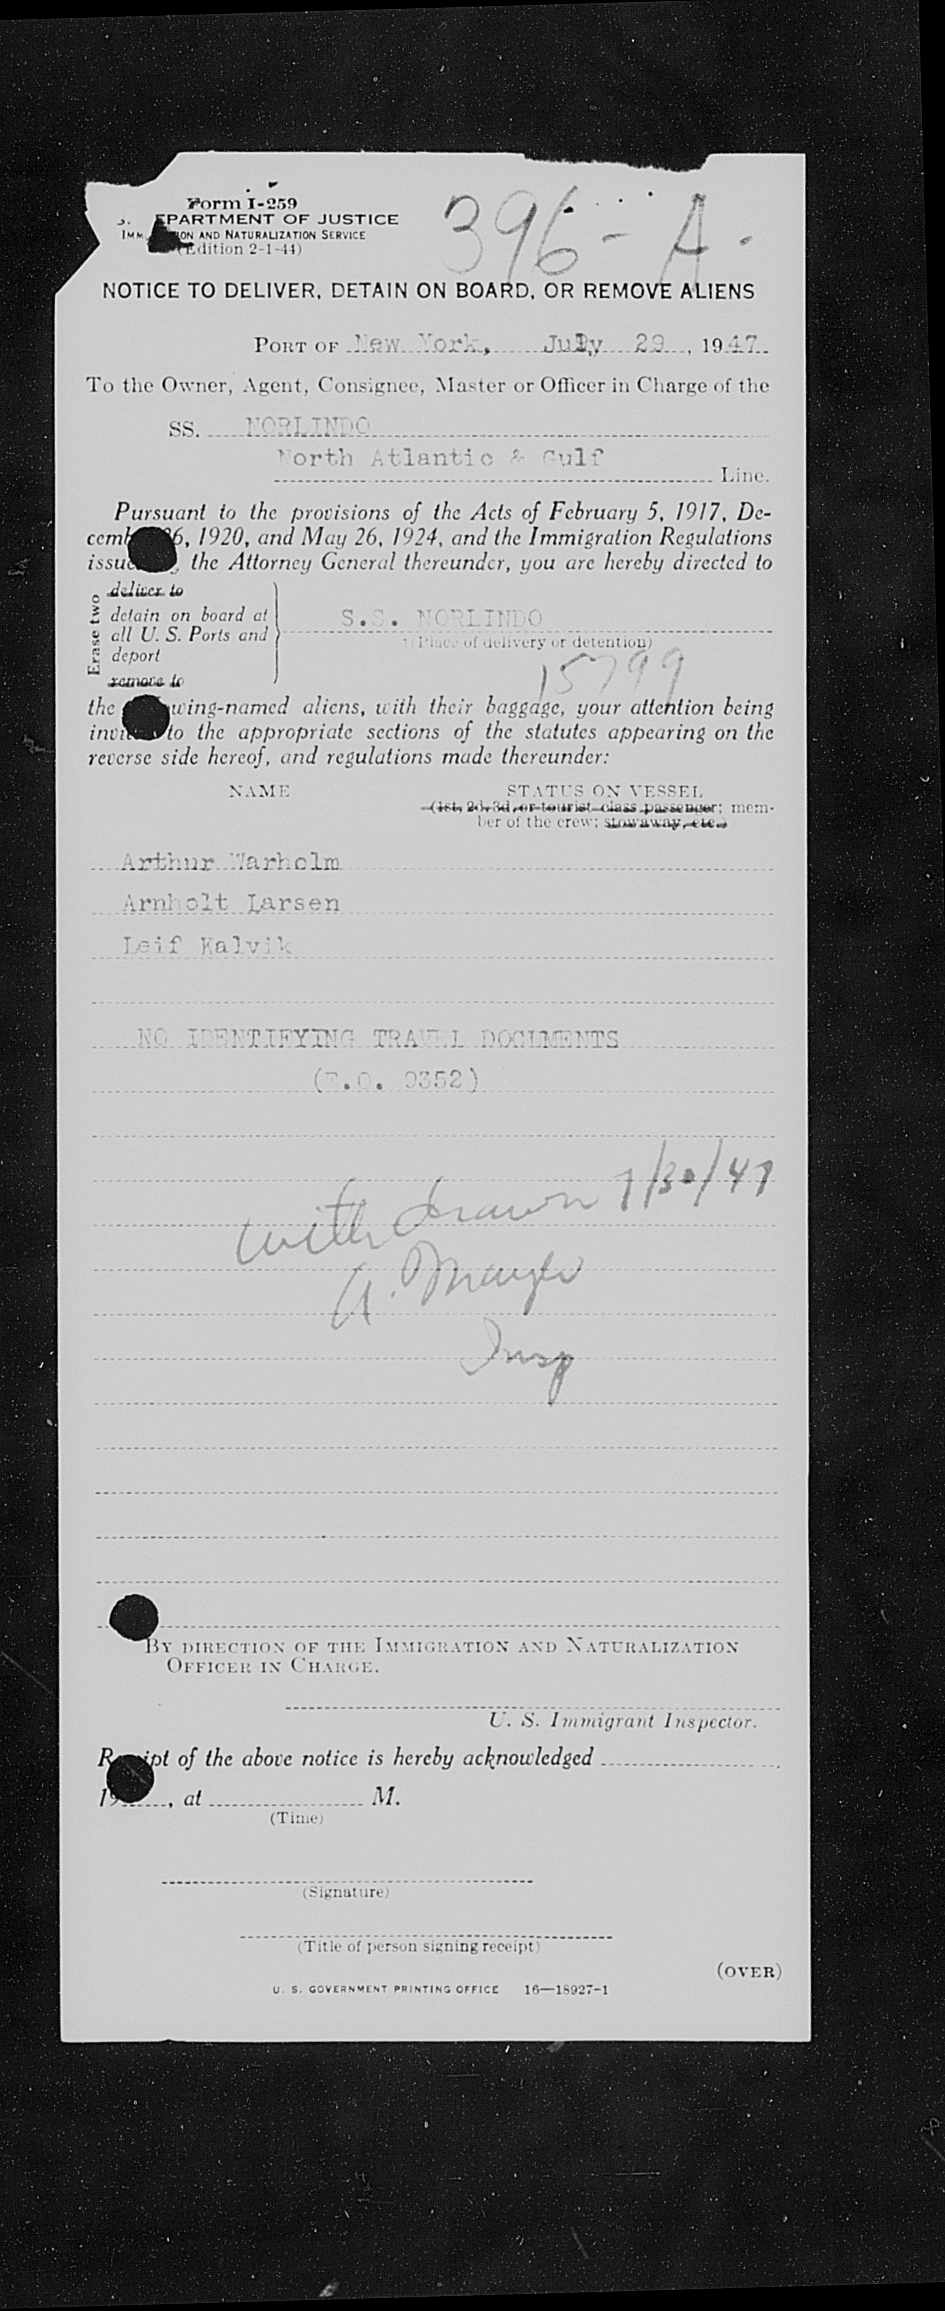 Form I-259
396-A-
S. EPARTMENT OF JUSTICE
IMM ION AND NATURALIZATION SERVICE
(Edition 2-1-44)
NOTICE TO DELIVER, DETAIN ON BOARD, OR REMOVE ALIENS
PORT OF New York, July 29, 1947
To the Owner, Agent, Consignee, Master or Officer in Charge of the
SS. NORLINDO
North Atlantic & Gulf
Line.
Pursuant to the provisions of the Acts of February 5, 1917, De-
cemb 26, 1920, and May 26, 1924, and the Immigration Regulations
issue y the Attorney General thereunder, you are hereby directed to
Erase two
deliver to
detain on board at
all U. S. Ports and
deport
remove to
S.S. NORLINDO
(Place of delivery or detention)
15799
the wing-named aliens, with their baggage, your attention being
invi to the appropriate sections of the statutes appearing on the
reverse side hereof, and regulations made thereunder:
NAME
STATUS ON VESSEL
(1st, 2d, 3d, or tourist class passenger; mem-
ber of the crew; stowaway, etc.)
Arthur Warholm
Arnholt Larsen
Leif Kalvik
NO IDENTIFYING TRAVEL DOCUMENTS
(E.O. 9352)
withdrawn 7/30/47
A.
Insp
BY DIRECTION OF THE IMMIGRATION AND NATURALIZATION
OFFICER IN CHARGE.
U. S. Immigrant Inspector.
R ipt of the above notice is hereby acknowledged
19 , at M.
(Time)
(Signature)
(Title of person signing receipt)
(OVER)
U. S. GOVERNMENT PRINTING OFFICE 16—18927-1